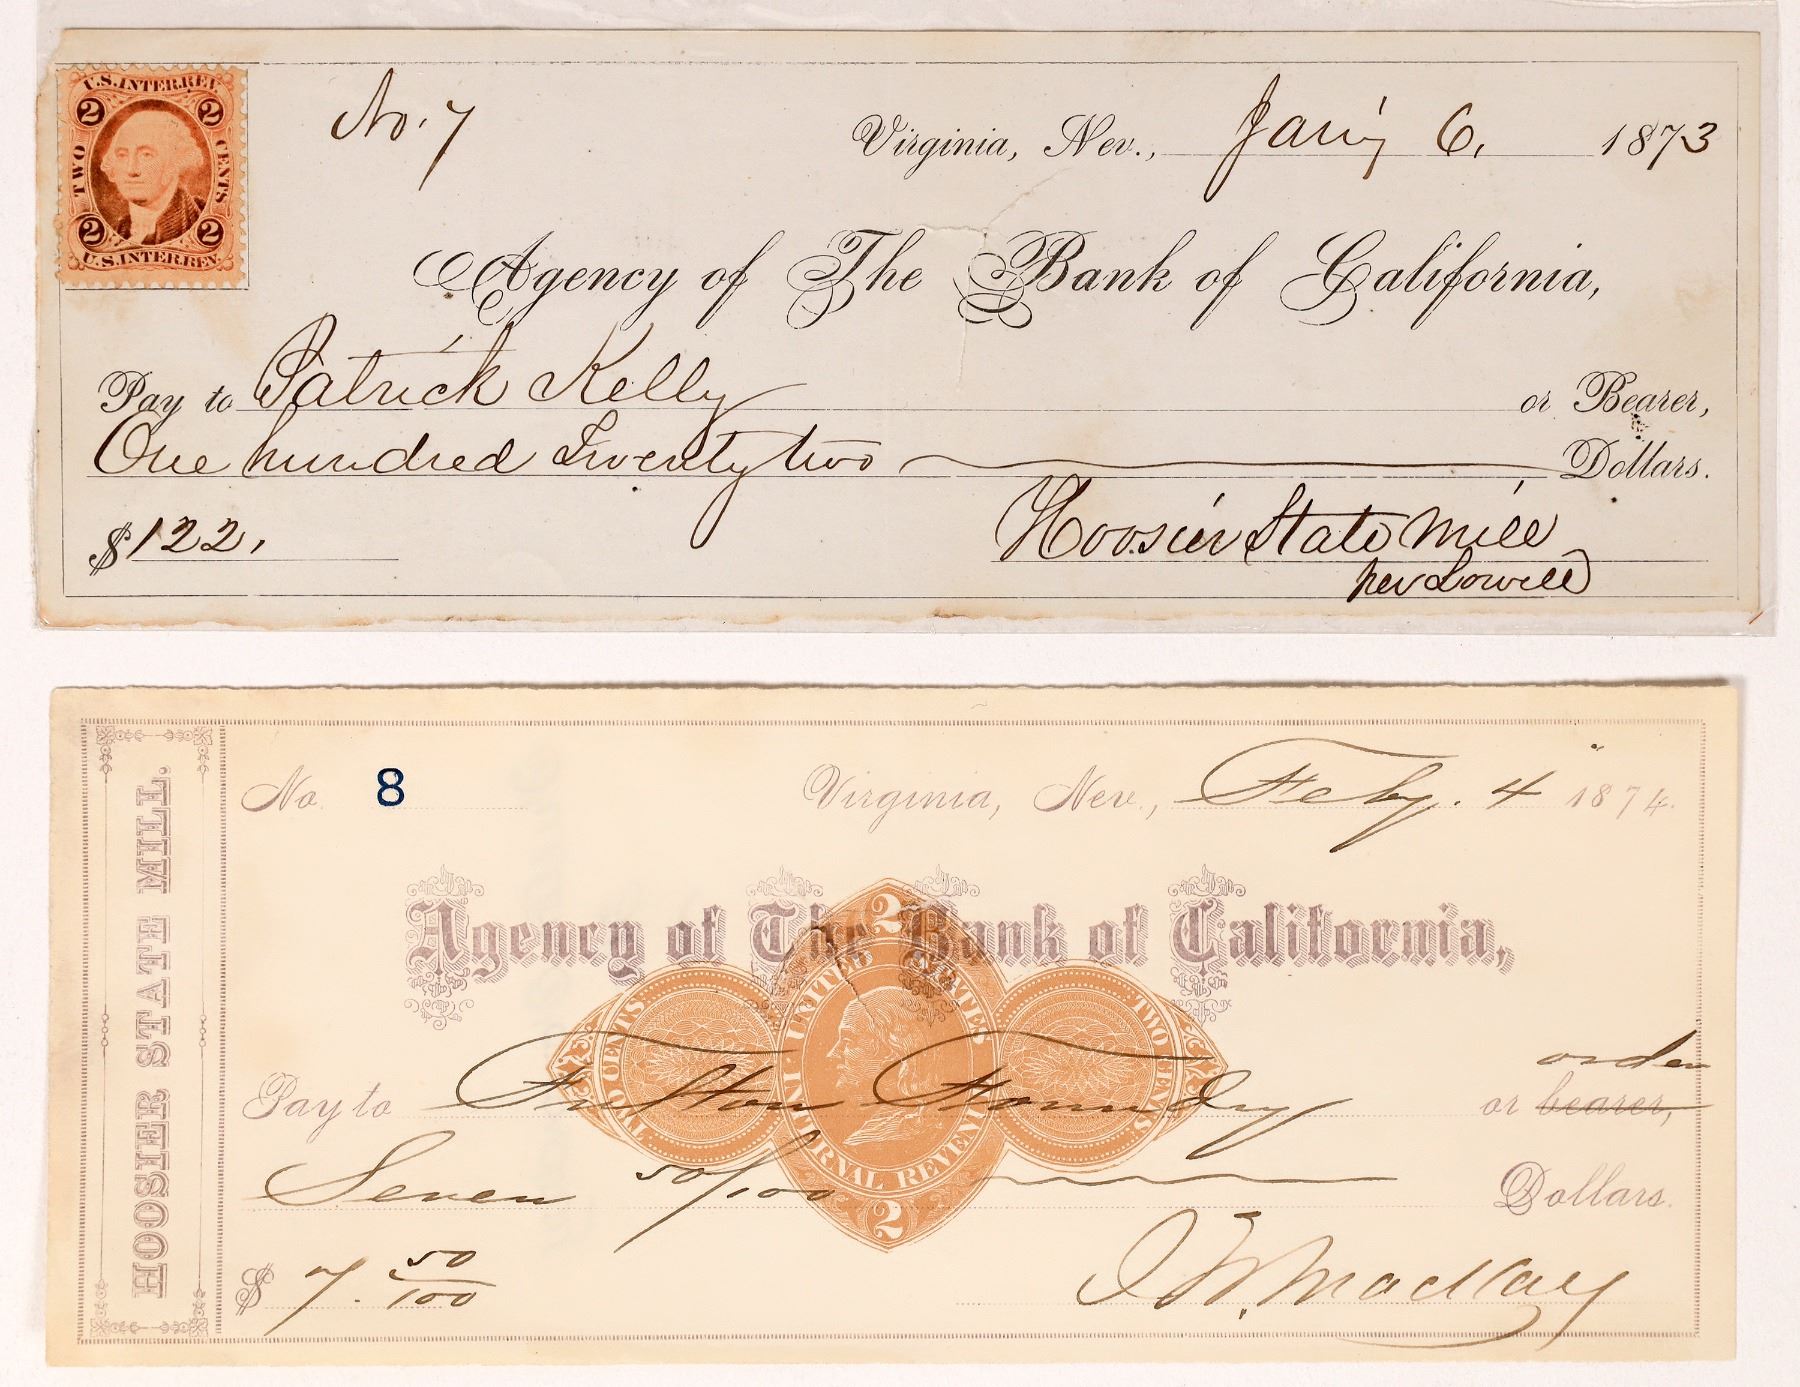 U.S. INTER. REV.
2 2
TWO CENTS
2 2
U.S. INTER. REV.
No. 7
Virginia, Nev., Jan'y 6, 1873
Agency of The Bank of California,
Pay to Patrick Kelly or Bearer,
One hundred Twenty two Dollars.
$122.
Hoosier State Mill
per Lowell
HOOSIER STATE MILL.
No. 8
Virginia, Nev., Feby. 4 1874.
Agency of The Bank of California,
2
UNITED STATES
INTERNAL REVENUE
TWO CENTS TWO CENTS
order
Pay to Fulton Foundry or bearer,
Seven 50/100 Dollars.
2
$ 7. 50/100